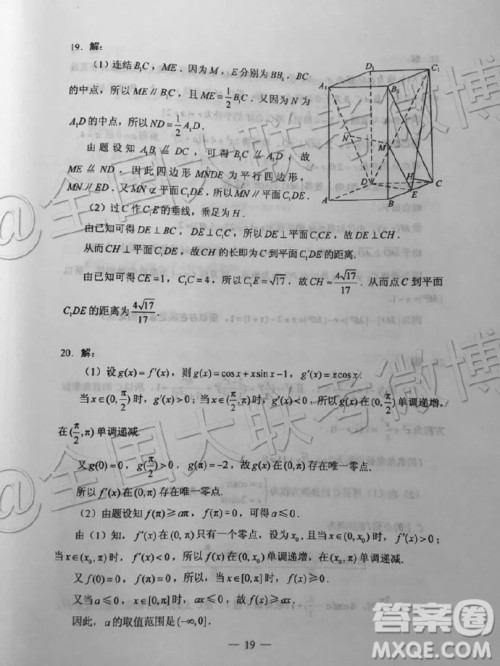 19. 解:
(1) 连结 B₁C, ME. 因为 M, E 分别为 BB₁, BC
的中点, 所以 ME∥B₁C, 且 ME=\frac{1}{2}B₁C. 又因为 N 为
A₁D 的中点, 所以 ND=\frac{1}{2}A₁D.
由题设知 A₁B₁⫽DC, 可得 B₁C⫽A₁D, 故
ME⫽ND, 因此四边形 MNDE 为平行四边形,
MN∥ED. 又 MN⊄平面C₁DE, 所以MN∥平面C₁DE.
(2) 过 C 作 C₁E 的垂线, 垂足为 H.
由已知可得 DE⊥BC, DE⊥C₁C, 所以 DE⊥平面 C₁CE, 故 DE⊥CH.
从而CH⊥平面C₁DE, 故CH的长即为C到平面C₁DE的距离.
由已知可得 CE=1, C₁C=4, 所以C₁E=√17, 故CH=\frac{4√17}{17}. 从而点 C 到平面
C₁DE 的距离为\frac{4√17}{17}.
D₁
C₁
A₁
B₁
N
M
D
C
H
E
A
B
20. 解:
(1) 设 g(x)=f′(x), 则 g(x)=cosx+xsinx−1, g′(x)=xcosx.
当x∈(0,\frac{π}{2})时, g′(x)>0; 当x∈(\frac{π}{2},π)时, g′(x)<0, 所以g(x)在(0,\frac{π}{2})单调递增,
在(\frac{π}{2},π)单调递减.
又 g(0)=0, g(\frac{π}{2})>0, g(π)=−2, 故 g(x)在(0,π)存在唯一零点.
所以 f′(x)在(0,π)存在唯一零点.
(2) 由题设知 f(π)≥aπ, f(π)=0, 可得 a≤0.
由 (1) 知, f′(x)在(0,π)只有一个零点, 设为 x₀, 且当x∈(0,x₀)时, f′(x)>0;
当x∈(x₀,π)时, f′(x)<0, 所以 f(x)在(0,x₀)单调递增, 在(x₀,π)单调递减.
又 f(0)=0, f(π)=0, 所以, 当x∈[0,π]时, f(x)≥0.
又当a≤0, x∈[0,π]时, ax≤0, 故 f(x)≥ax.
因此, a的取值范围是(−∞,0].
— 19 —
@全国大联考微博
@全国大联考微博
答案圈
MXQE.COM